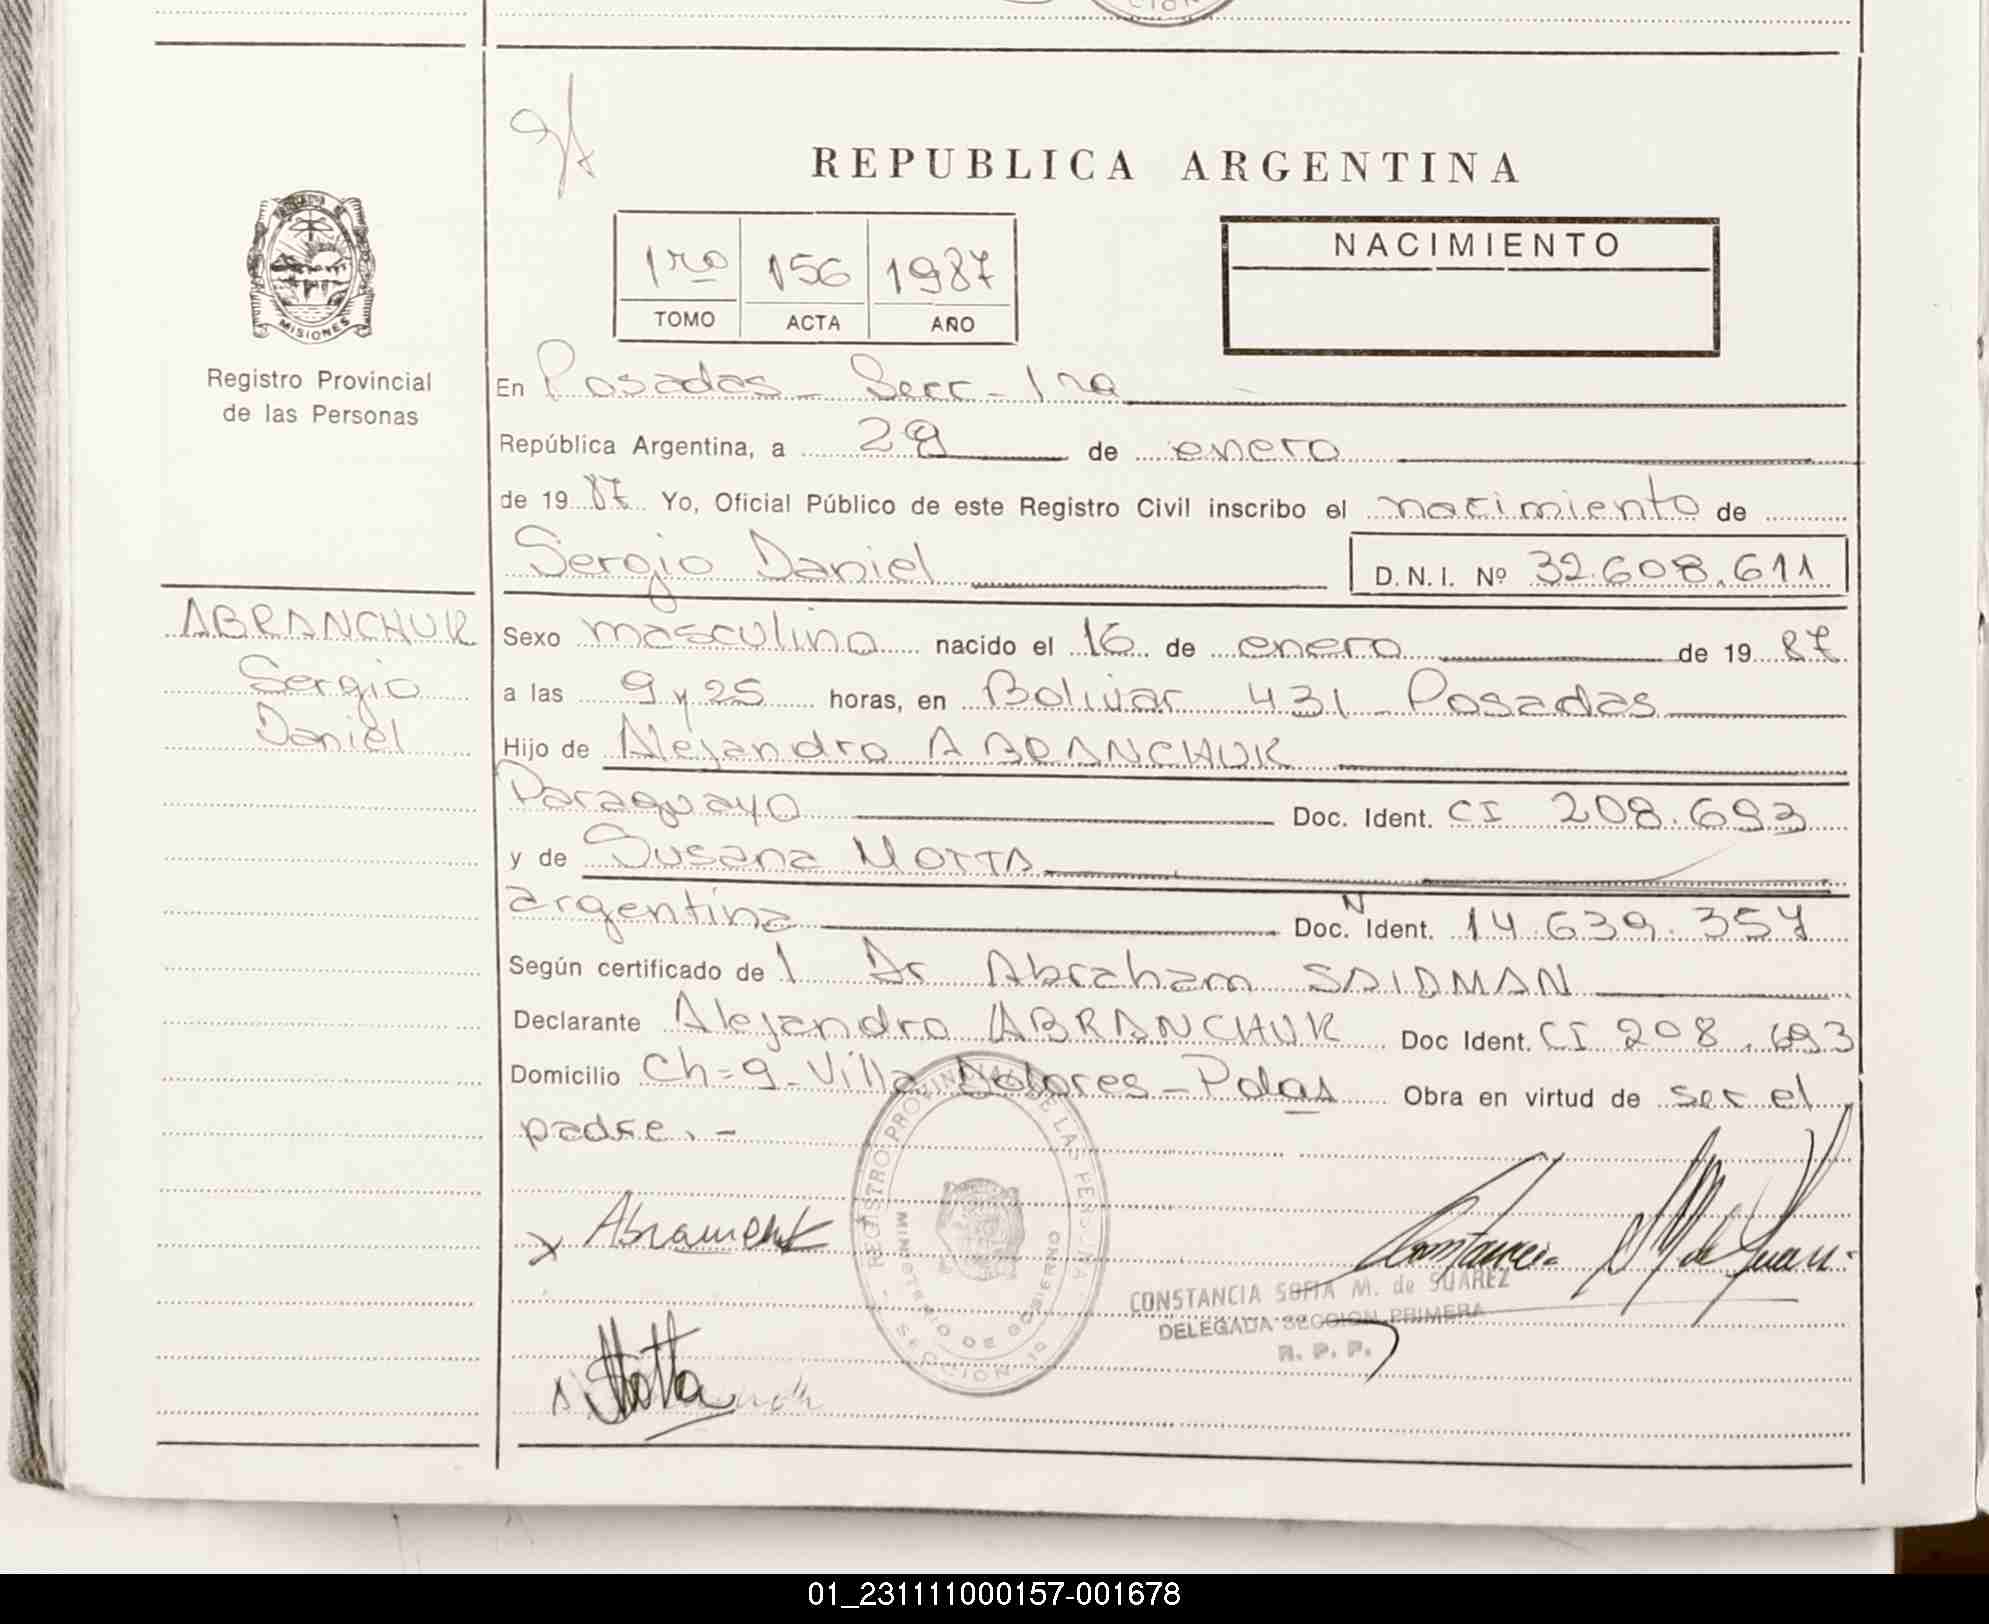 REPUBLICA ARGENTINA
1ro 156 1987
TOMO ACTA AÑO
NACIMIENTO
MISIONES
Registro Provincial
de las Personas
ABRANCHUK
Sergio
Daniel
En Posadas - Secc - 1ra
República Argentina, a 29 de enero
de 1987 Yo, Oficial Público de este Registro Civil inscribo el nacimiento de
Sergio Daniel D.N.I. Nº 32.608.611
Sexo masculino nacido el 16 de enero de 1987
a las 9 y 25 horas, en Bolivar 431 - Posadas
Hijo de Alejandro ABRANCHUK
Paraguayo Doc. Ident. CI 208.693
y de Susana MOTTA
argentina Doc. N Ident. 14.639.357
Según certificado de l Dr Abraham SAIDMAN
Declarante Alejandro ABRANCHUK Doc Ident. CI 208.693
Domicilio Ch=9 - Villa Dolores - Pdas Obra en virtud de ser el
padre. -
REGISTRO PROVINCIAL DE LAS PERSONAS
MINISTERIO DE GOBIERNO
CONSTANCIA SOFIA M. de SUAREZ
DELEGADA SECCION PRIMERA
R. P. P.
Motta
01_231111000157-001678